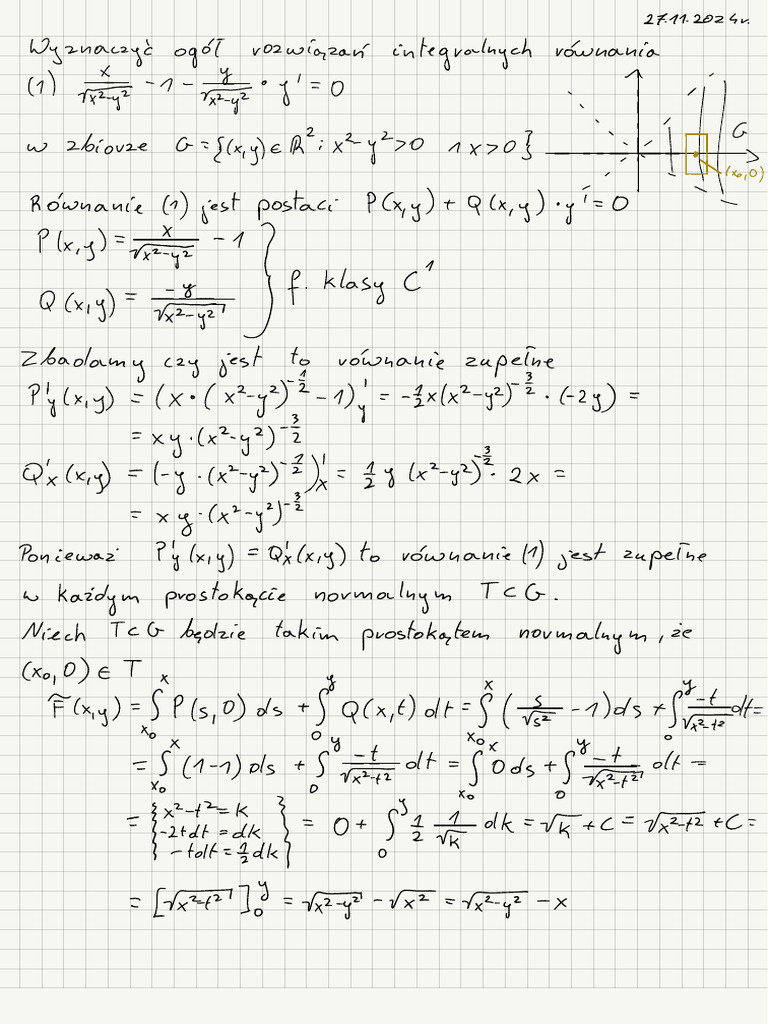 27.11.2024r.
Wyznaczyć ogół rozwiązań integralnych równania
(1) x/√(x²-y²) - 1 - y/√(x²-y²) · y' = 0
w zbiorze G = {(x,y) ∈ ℝ² : x²-y²>0 ∧ x>0}
G
(x₀,0)
Równanie (1) jest postaci P(x,y) + Q(x,y) · y' = 0
P(x,y) = x/√(x²-y²) - 1
Q(x,y) = -y/√(x²-y²)
} f. klasy C¹
Zbadamy czy jest to równanie zupełne
P'y(x,y) = (x · (x²-y²)^(-1/2) - 1)'y = -1/2 x(x²-y²)^(-3/2) · (-2y) =
= xy · (x²-y²)^(-3/2)
Q'x(x,y) = (-y · (x²-y²)^(-1/2))'x = 1/2 y (x²-y²)^(-3/2) · 2x =
= xy · (x²-y²)^(-3/2)
Ponieważ P'y(x,y) = Q'x(x,y) to równanie (1) jest zupełne
w każdym prostokącie normalnym T⊂G.
Niech T⊂G będzie takim prostokątem normalnym, że
(x₀,0) ∈ T
F̃(x,y) = ∫_{x₀}^{x} P(s,0) ds + ∫_{0}^{y} Q(x,t) dt = ∫_{x₀}^{x} (s/√s² - 1)ds + ∫_{0}^{y} -t/√(x²-t²) dt =
= ∫_{x₀}^{x} (1-1) ds + ∫_{0}^{y} -t/√(x²-t²) dt = ∫_{x₀}^{x} 0 ds + ∫_{0}^{y} -t/√(x²-t²) dt =
= { x²-t² = k
-2tdt = dk
-tdt = 1/2 dk } = 0 + ∫_{0}^{y} 1/2 1/√k dk = √k + C = √(x²-t²) + C =
= [√(x²-t²)]_{0}^{y} = √(x²-y²) - √x² = √(x²-y²) - x